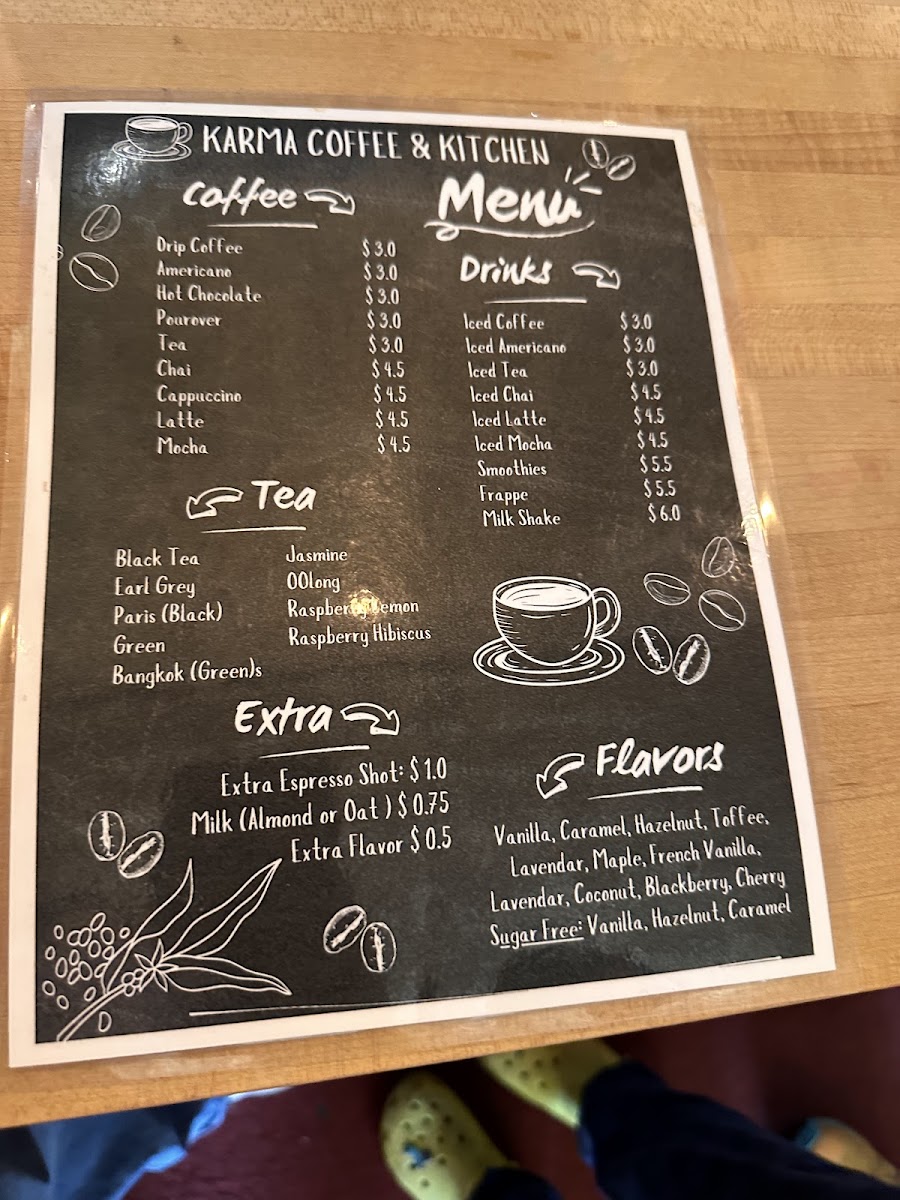 KARMA COFFEE & KITCHEN
Menu
Coffee
Drip Coffee $3.0
Americano $3.0
Hot Chocolate $3.0
Pourover $3.0
Tea $3.0
Chai $4.5
Cappuccino $4.5
Latte $4.5
Mocha $4.5
Drinks
Iced Coffee $3.0
Iced Americano $3.0
Iced Tea $3.0
Iced Chai $4.5
Iced Latte $4.5
Iced Mocha $4.5
Smoothies $5.5
Frappe $5.5
Milk Shake $6.0
Tea
Black Tea
Earl Grey
Paris (Black)
Green
Bangkok (Green)s
Jasmine
OOlong
Raspberry Lemon
Raspberry Hibiscus
Extra
Extra Espresso Shot: $1.0
Milk (Almond or Oat ) $0.75
Extra Flavor $0.5
Flavors
Vanilla, Caramel, Hazelnut, Toffee,
Lavendar, Maple, French Vanilla,
Lavendar, Coconut, Blackberry, Cherry
Sugar Free: Vanilla, Hazelnut, Caramel